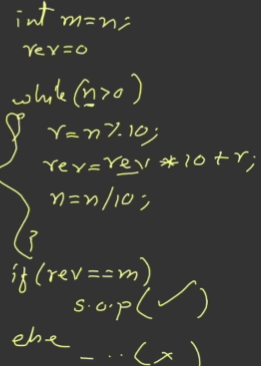 int m=n;
rev=0
while(n>0)
{
r=n%10;
rev=rev*10+r;
n=n/10;
}
if(rev==m)
s.o.p(✓)
else
_ ..(×)